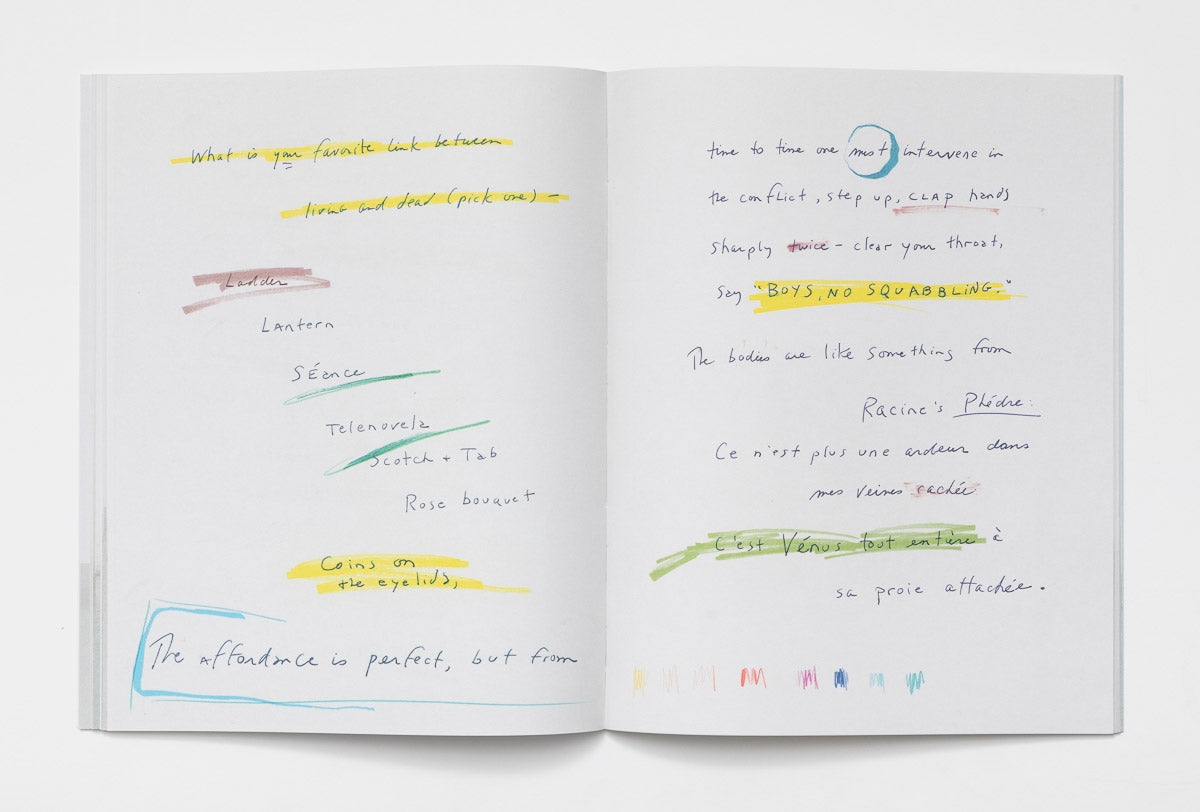 What is your favorite link between
living and dead (pick one) –
Ladder
Lantern
SÉance
Telenovela
Scotch + Tab
Rose bouquet
Coins on
the eyelids,
The affordance is perfect, but from
time to time one must intervene in
the conflict, step up, CLAP hands
sharply twice – clear your throat,
say "BOYS, NO SQUABBLING."
The bodies are like something from
Racine's Phédre:
Ce n'est plus une ardeur dans
mes veines cachée
C'est Vénus tout entière à
sa proie attachée.